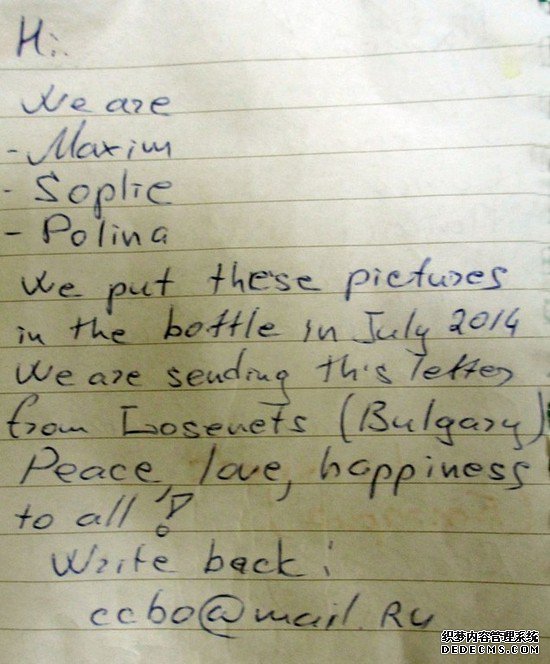 Hi.
We are
- Maxim
- Soplie
- Polina
We put these pictures
in the bottle in July 2014
We are sending this letter
from Losenets (Bulgary)
Peace, love, happiness
to all!
Write back:
ccbo@mail.Ru
织梦内容管理系统
DEDECMS.COM